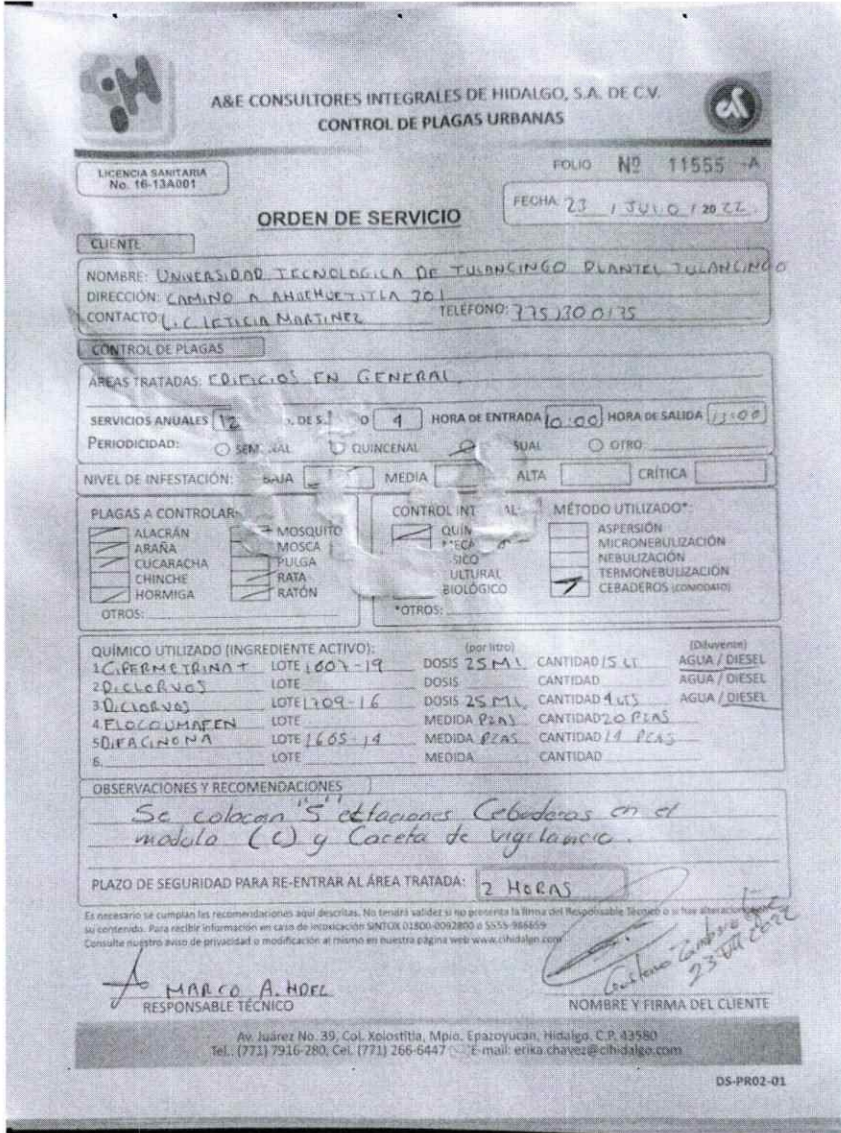 A&E CONSULTORES INTEGRALES DE HIDALGO, S.A. DE C.V.
CONTROL DE PLAGAS URBANAS
LICENCIA SANITARIA
No. 16-13A001
FOLIO Nº 11555 -A
ORDEN DE SERVICIO
FECHA: 23 / JULIO / 2022
CLIENTE
NOMBRE: UNIVERSIDAD TECNOLOGICA DE TULANCINGO PLANTEL TULANCINGO
DIRECCIÓN: CAMINO A AHUEHUETITLA 301
CONTACTO: LIC LETICIA MARTINEZ TELÉFONO:
CONTROL DE PLAGAS
ÁREAS TRATADAS: EDIFICIOS EN GENERAL
SERVICIOS ANUALES 12 HORA DE ENTRADA 10:00 HORA DE SALIDA
PERIODICIDAD: QUINCENAL OTRO
NIVEL DE INFESTACIÓN: BAJA MEDIA ALTA CRÍTICA
PLAGAS A CONTROLAR CONTROL MÉTODO UTILIZADO*:
ALACRÁN MOSQUITO ASPERSIÓN
ARAÑA MOSCA MICRONEBULIZACIÓN
CUCARACHA PULGA NEBULIZACIÓN
CHINCHE RATA TERMONEBULIZACIÓN
HORMIGA RATÓN BIOLÓGICO CEBADEROS (COMODATO)
OTROS: *OTROS:
QUÍMICO UTILIZADO (INGREDIENTE ACTIVO): (por litro) (Diluyente)
1. CIPERMETRINA + LOTE 1607-19 DOSIS 25 ML CANTIDAD 15 LT AGUA / DIESEL
2. DICLORVOS LOTE DOSIS CANTIDAD AGUA / DIESEL
3. DICLORVOS LOTE 1709-16 DOSIS 25 ML CANTIDAD 4 LTS AGUA / DIESEL
4. FLOCOUMAFEN LOTE MEDIDA PZAS CANTIDAD 20 PZAS
5. DIFACINONA LOTE 1605-14 MEDIDA PZAS CANTIDAD PZAS
6. LOTE MEDIDA CANTIDAD
OBSERVACIONES Y RECOMENDACIONES
Se colocan "5" estaciones Cebaderos en el
modulo (C) y Caceta de vigilancia.
PLAZO DE SEGURIDAD PARA RE-ENTRAR AL ÁREA TRATADA: 2 HORAS
Es necesario se cumplan las recomendaciones aquí descritas. No tendrá validez si no presenta la firma del Responsable Técnico o si hay
su contenido. Para recibir información en caso de intoxicación SINTOX 01800-0092800 o 5555-986659
Consulte nuestro aviso de privacidad o modificación al mismo en nuestra página web www.cihidalgo.com
23 VII 2022
MARCO A.
RESPONSABLE TÉCNICO NOMBRE Y FIRMA DEL CLIENTE
Av. Juárez No. 39, Col. Xolostitla, Mpio. Epazoyucan, Hidalgo, C.P. 43580
Tel.: (771) 7916-280, Cel. (771) 266-6447 E-mail: erika.chavez@cihidalgo.com
DS-PR02-01